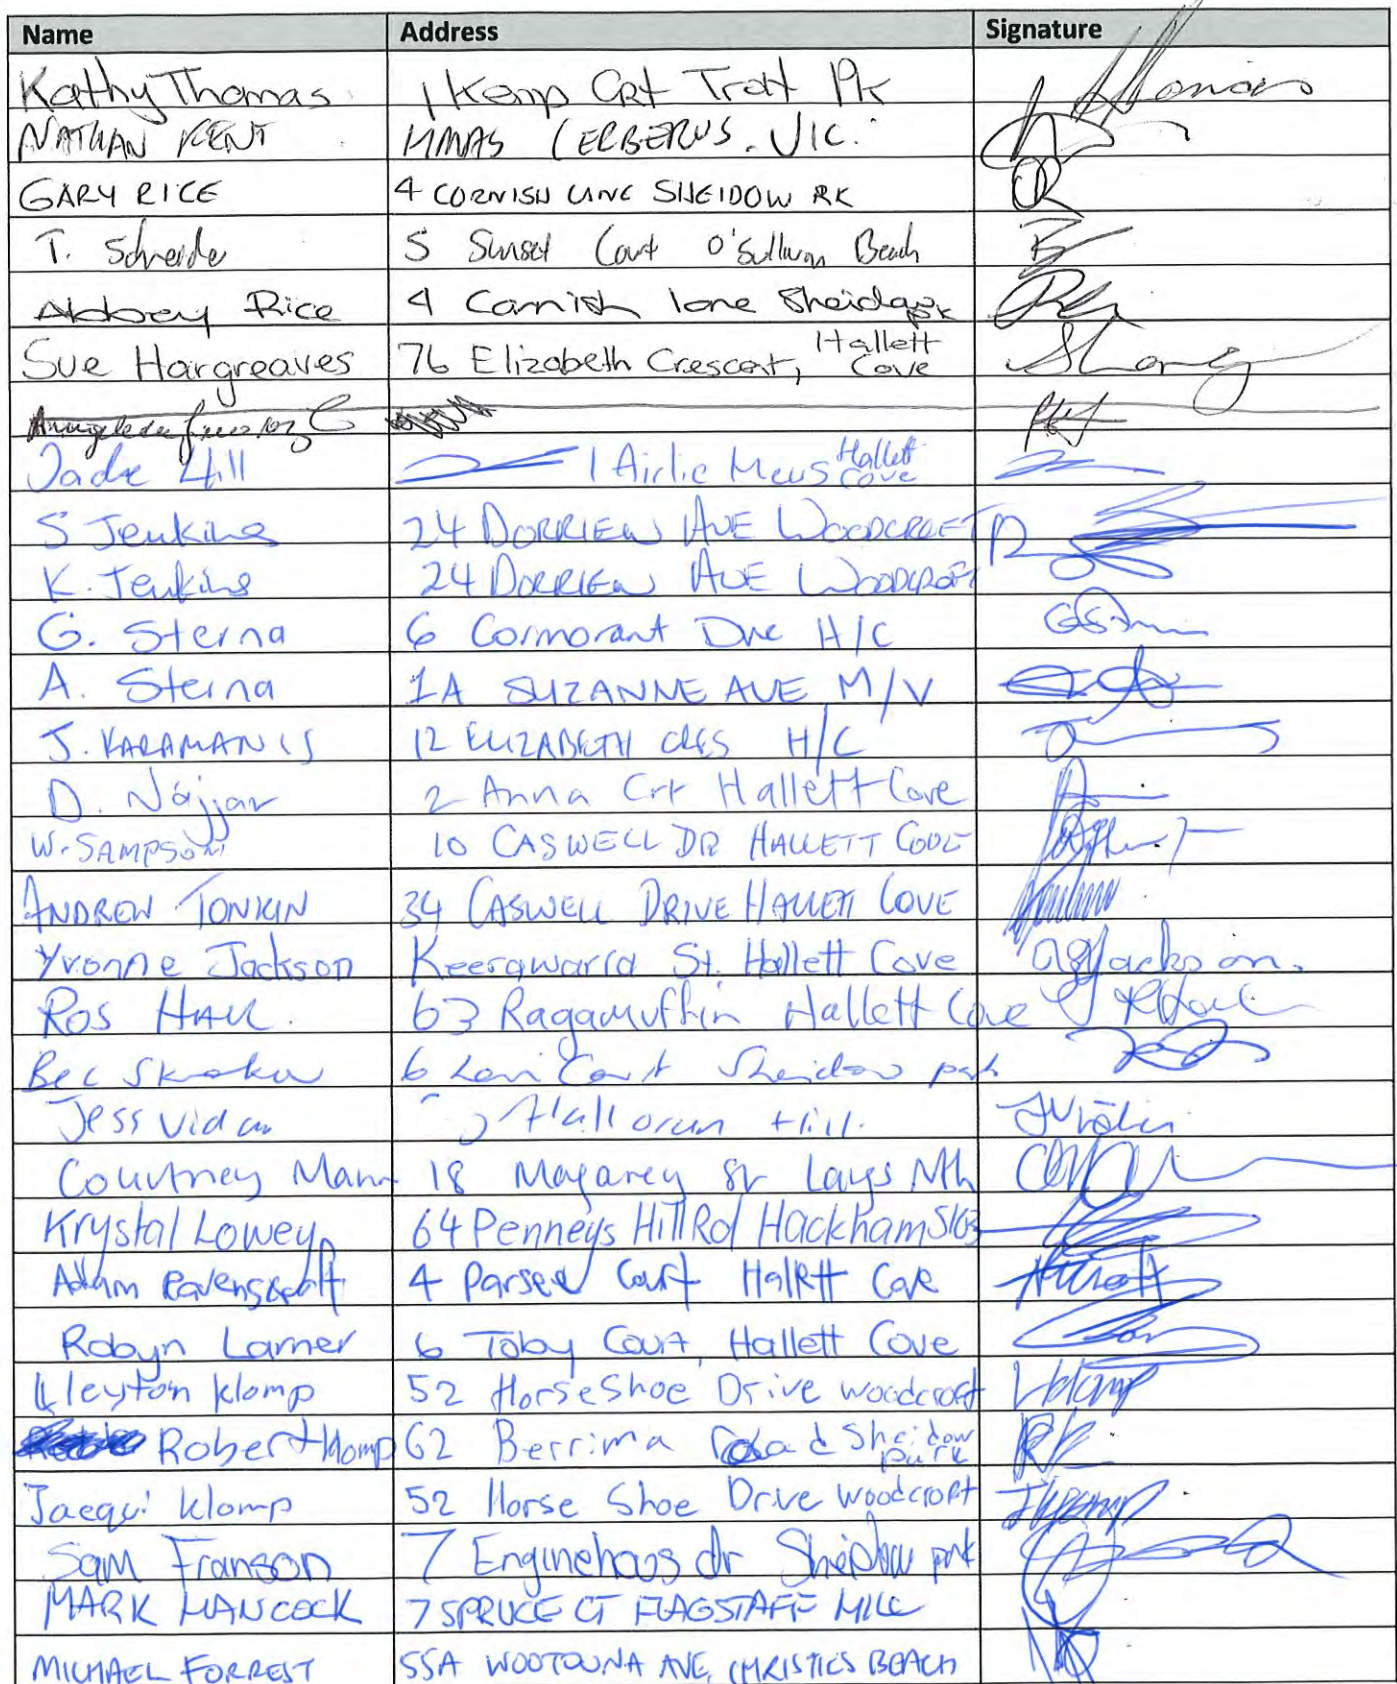 Name Address Signature
Kathy Thomas 1 Kemp Crt Trott Pk
NATHAN KENT HMAS CERBERUS. VIC.
GARY RICE 4 CORNISH LINE SHEIDOW PK
T. 5 Sunset Court O'Sullivan Beach
Abbey Rice 4 Cornish lane Sheidow pk
Sue Hargreaves 76 Elizabeth Crescent, Hallett Cove
Jade Hill 1 Airlie Mews Hallett Cove
S Jenkins 24 DORRIEN AVE WOODCROFT
K. Jenkins 24 DORRIEN AVE WOODCROFT
G. Sterna 6 Cormorant Dve H/C
A. Sterna 1A SUZANNE AVE M/V
J. KARAMANIS 12 ELIZABETH CRES H/C
D. Najjar 2 Anna Crt Hallett Cove
W. SAMPSON 10 CASWELL DR HALLETT COVE
ANDREW TONKIN 34 CASWELL DRIVE HALLETT COVE
Yvonne Jackson St. Hallett Cove Jackson.
ROS HALL. 63 Ragamuffin Hallett Cove
Bec 6 Court Sheidow park
Jess Vidau Halloran Hill.
Courtney Mann 18 Magarey St Lays Nth
Krystal Lowey 64 Penneys Hill Rd Hackham 5163
Adam Ravenscroft 4 Parsee Court Hallett Cove
Robyn Larner 6 Toby Court, Hallett Cove
Kleyton Klomp 52 HorseShoe Drive woodcroft
Robert Klomp 62 Berrima Road Sheidow park
Jacqui Klomp 52 Horse Shoe Drive Woodcroft
Sam Franson 7 Enginehous dr Sheidow park
MARK HANCOCK 7 SPRUCE CT FLAGSTAFF HILL
MICHAEL FORREST 55A WOOTOONA AVE, CHRISTIES BEACH